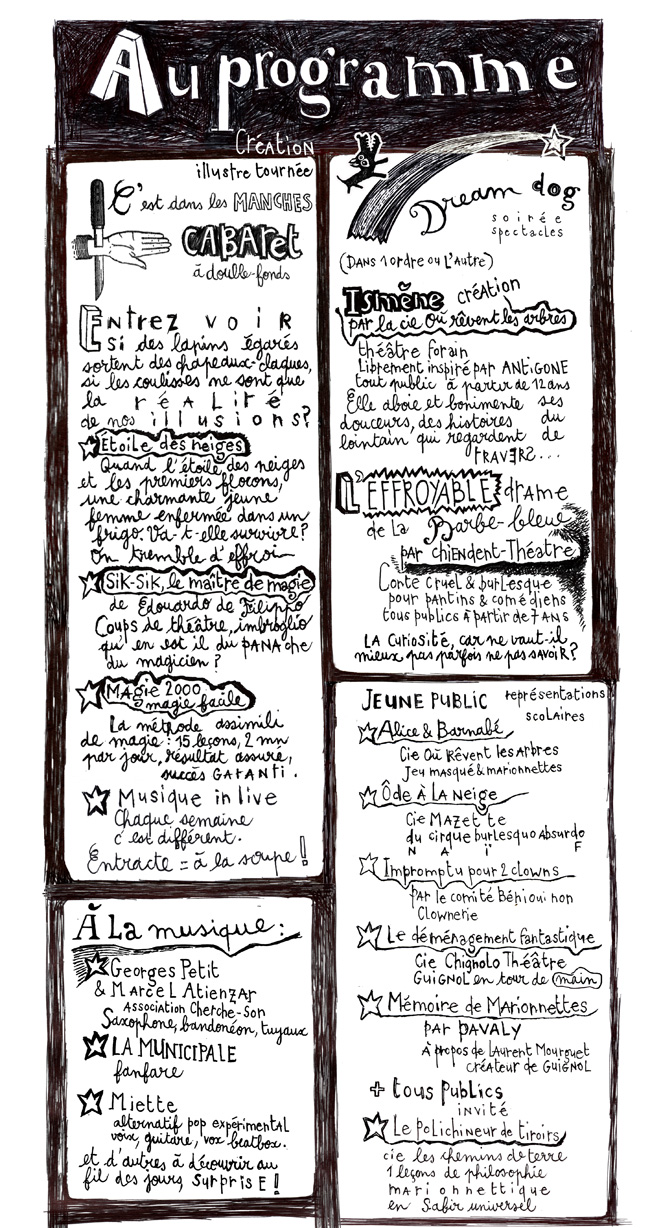 Au programme
Création
illustre tournée
C'est dans les MANCHES
CABARET
à double-fonds
Entrez voir
Si des lapins égarés
sortent des chapeaux-claques,
si les coulisses ne sont que
la réalité
de nos illusions?
Étoile des neiges
Quand l'étoile des neiges
et les premiers flocons,
une charmante jeune
femme enfermée dans un
frigo. Va-t-elle survivre?
On tremble d'effroi
Sik-Sik, le maître de magie
de Edouardo de Filippo
Coups de théâtre, imbroglio
qu'en est il du PANAche
du magicien?
MAgie 2000
magie facile
La méthode assimili
de magie : 15 leçons, 2 mn
par jour, résultat assuré,
succès GARANTI.
Musique in live
Chaque semaine
c'est différent.
Entracte = à la soupe!
À La musique :
Georges Petit
& Marcel Atienzar
Association Cherche-Son
Saxophone, bandonéon, tuyaux
LA MUNICIPALE
fanfare
Miette
alternatif pop expérimental
voix, guitare, vox beatbox.
et d'autres à découvrir au
fil des jours, Surprise!
Dream dog
soirée
spectacles
(DANS 1 ordre ou L'Autre)
Ismène création
par la cie Où rêvent les arbres
théâtre forain
Librement inspiré par ANTIGONE
tout public à partir de 12 ans
Elle aboie et bonimente ses
douceurs, des histoires du
lointain qui regardent de
TRAVERS...
L'EFFROYABLE drame
de La Barbe-bleue
par chiendent-Théatre
Conte cruel & burlesque
pour pantins & comédiens
tous publics à partir de 7 ans
La curiosité, car ne vaut-il
mieux pas parfois ne pas savoir?
JEUNE PUBLIC représentations
scolaires
Alice & Barnabé
Cie Où Rêvent les Arbres
Jeu masqué & marionnettes
Ôde À LA Neige
Cie Mazette
du cirque burlesquo Absurdo
N A ï F
Impromptu pour 2 clowns
Par le comité Béhi oui non
Clownerie
Le déménagement fantastique
Cie Chignolo Théâtre
GUIGNOL en tour de main
Mémoire de Marionnettes
par PAVALY
À propos de Laurent Mourguet
créateur de GUIGNOL
+ tous publics
invité
Le Polichineur de tiroirs
cie les chemins de terre
1 leçons de philosophie
marionnettique
en Sabir universel